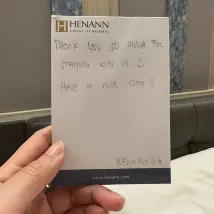 HENANN
GROUP OF RESORTS
THANK YOU SO MUCH FOR
STAYING WITH US
HAVE A NICE DAY
www.henann.com